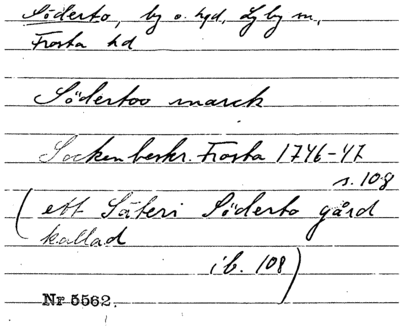 Söderto, by o. hgd, Ljby sn,
Frosta hd
Södertoo marck
Sockenbeskr. Frosta 1746-47
s. 108
(ett Säteri Söderto gård
kallad
ib. 108)
Nr 5562.